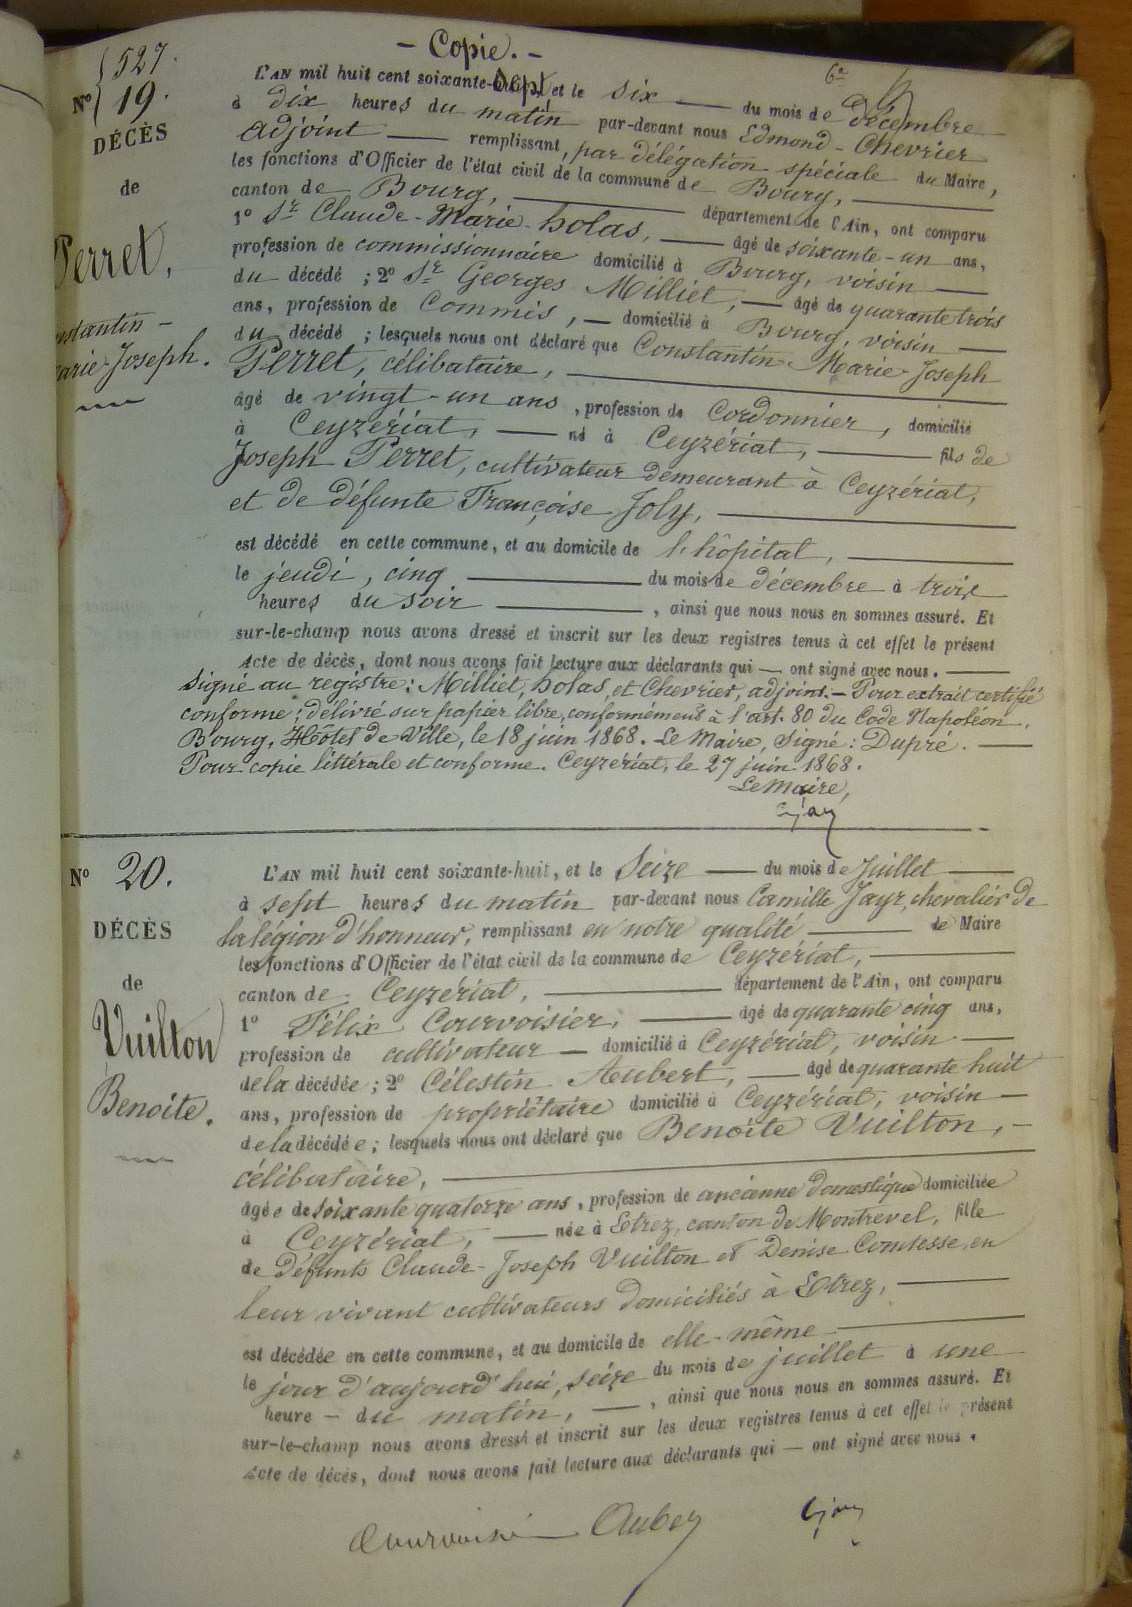 - Copie. -
527.
Nº 19.
DÉCÈS
de
Perret,
nstantin -
arie-Joseph.
6e
L'AN mil huit cent soixante-sept, et le six du mois de décembre
à dix heures du matin par-devant nous Edmond-Chevrier
adjoint remplissant, par délégation spéciale du Maire,
les fonctions d'Officier de l'état civil de la commune de Bourg,
canton de Bourg, département de l'Ain, ont comparu
1º Sr Claude-Marie-holas, âgé de soixante-un ans,
profession de commissionnaire domicilié à Bourg, voisin
du décédé ; 2º Sr Georges Milliet, âgé de quarante trois
ans, profession de commis, domicilié à Bourg, voisin
du décédé ; lesquels nous ont déclaré que Constantin-Marie-Joseph
Perret, célibataire,
âgé de vingt-un ans, profession de cordonnier, domicilié
à Ceyzériat, né à Ceyzériat, fils de
Joseph Perret, cultivateur demeurant à Ceyzériat,
et de défunte Françoise Joly,
est décédé en cette commune, et au domicile de l'hôpital,
le jeudi, cinq du mois de décembre à trois
heures du soir, ainsi que nous nous en sommes assuré. Et
sur-le-champ nous avons dressé et inscrit sur les deux registres tenus à cet effet le présent
Acte de décès, dont nous avons fait lecture aux déclarants qui — ont signé avec nous.
Signé au registre: Milliet, holas, et Chevrier, adjoint. - Pour extrait certifié
conforme; délivré sur papier libre, conformément à l'art. 80 du Code Napoléon.
Bourg, Hôtel de Ville, le 18 juin 1868. Le Maire, Signé: Dupré.
Pour copie littérale et conforme. Ceyzériat, le 27 juin 1868.
Le Maire,
Nº 20.
DÉCÈS
de
Vuilton
Benoite.
L'AN mil huit cent soixante-huit, et le Seize du mois de Juillet
à sept heures du matin par-devant nous Camille Jayr, chevalier de
la légion d'honneur, remplissant en notre qualité de Maire
les fonctions d'Officier de l'état civil de la commune de Ceyzériat,
canton de Ceyzériat, département de l'Ain, ont comparu
1º Félix Courvoisier, âgé de quarante cinq ans,
profession de cultivateur domicilié à Ceyzériat, voisin
de la décédée ; 2º Célestin Aubert, âgé de quarante huit
ans, profession de propriétaire domicilié à Ceyzériat, voisin
de la décédée ; lesquels nous ont déclaré que Benoite Vuilton,
célibataire,
âgée de soixante quatorze ans, profession de ancienne domestique domiciliée
à Ceyzériat, née à Etrez, canton de Montrevel, fille
de défunts Claude-Joseph Vuilton et Denise Comtesse, en
leur vivant cultivateurs domiciliés à Etrez,
est décédée en cette commune, et au domicile de elle-même
le jour d'aujourd'hui, seize du mois de juillet à une
heure - du matin, ainsi que nous nous en sommes assuré. Et
sur-le-champ nous avons dressé et inscrit sur les deux registres tenus à cet effet le présent
Acte de décès, dont nous avons fait lecture aux déclarants qui — ont signé avec nous.